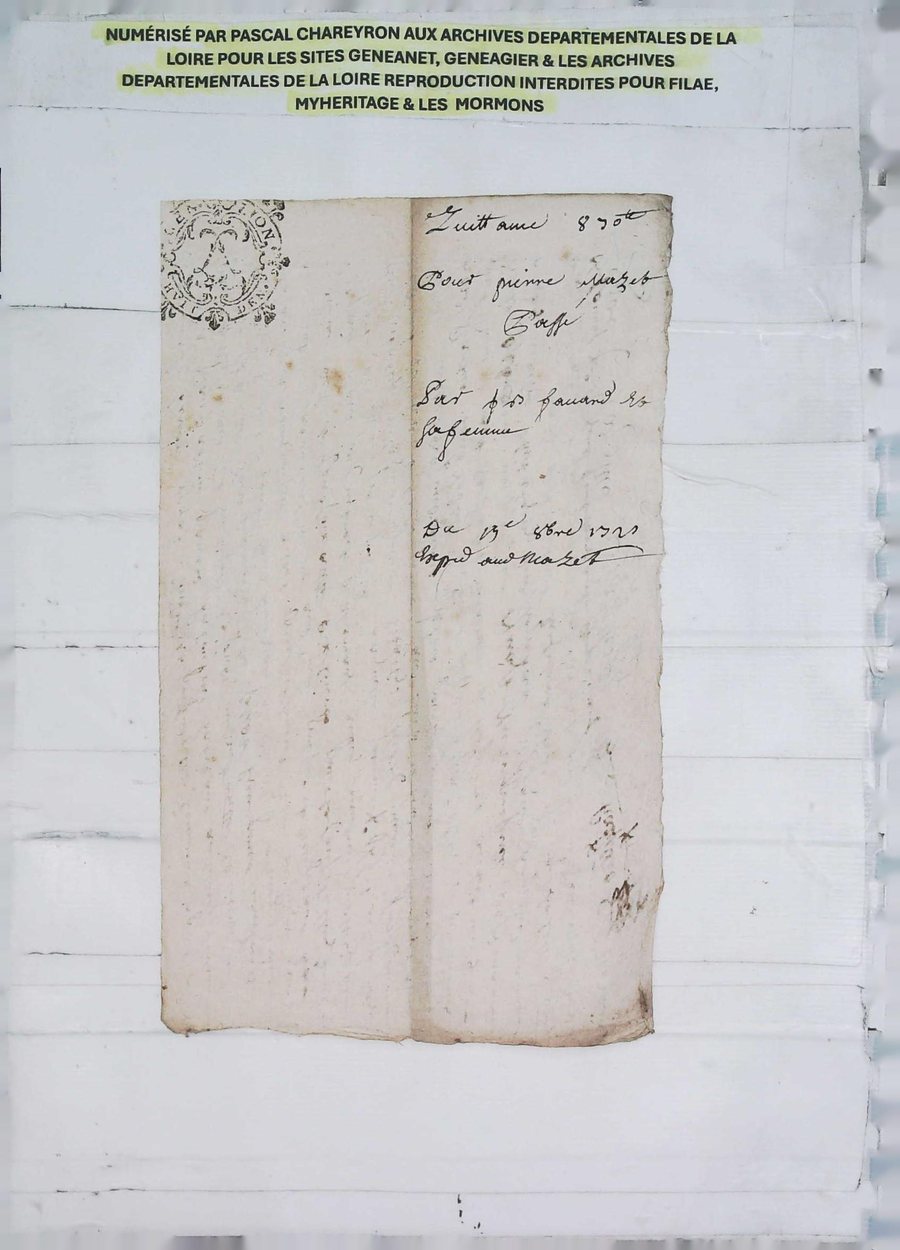 NUMÉRISÉ PAR PASCAL CHAREYRON AUX ARCHIVES DEPARTEMENTALES DE LA
LOIRE POUR LES SITES GENEANET, GENEAGIER & LES ARCHIVES
DEPARTEMENTALES DE LA LOIRE REPRODUCTION INTERDITES POUR FILAE,
MYHERITAGE & LES MORMONS
GEN LION
Quittance
Pour pierre Mazet
Passé
Par fauard et
sa femme
Du 8bre
Expd aud Mazet